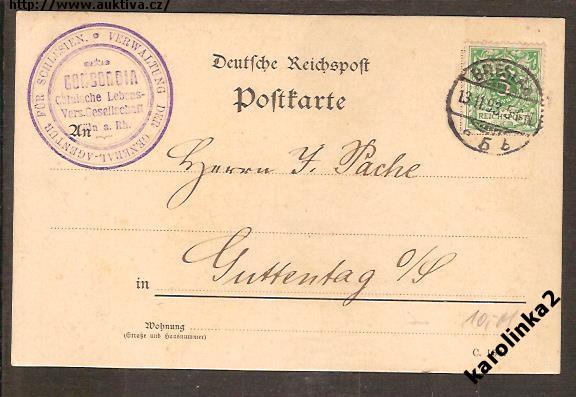 http://www.auktiva.cz/
VERWALTUNG DER GENERAL-AGENTUR FÜR SCHLESIEN.
CONCORDIA
Cölnische Lebens-
Vers.Gesellschaft
Cöln a. Rh.
Deutsche Reichspost
Postkarte
5
REICHSPOST
BRESLAU
13.11.
5 b
An
Herrn J. Pache
in Guttentag O/S
Wohnung
(Straße und Hausnummer)
10,-
C.
karolinka2